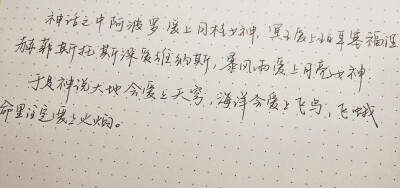 神话之中阿波罗爱上月桂女神，冥王爱上珀耳塞福涅
赫菲斯托斯深爱维纳斯，暴风雨爱上月亮女神
于是神说大地会爱上天穹，海洋会爱上飞鸟，飞蛾
命里注定爱上火焰。